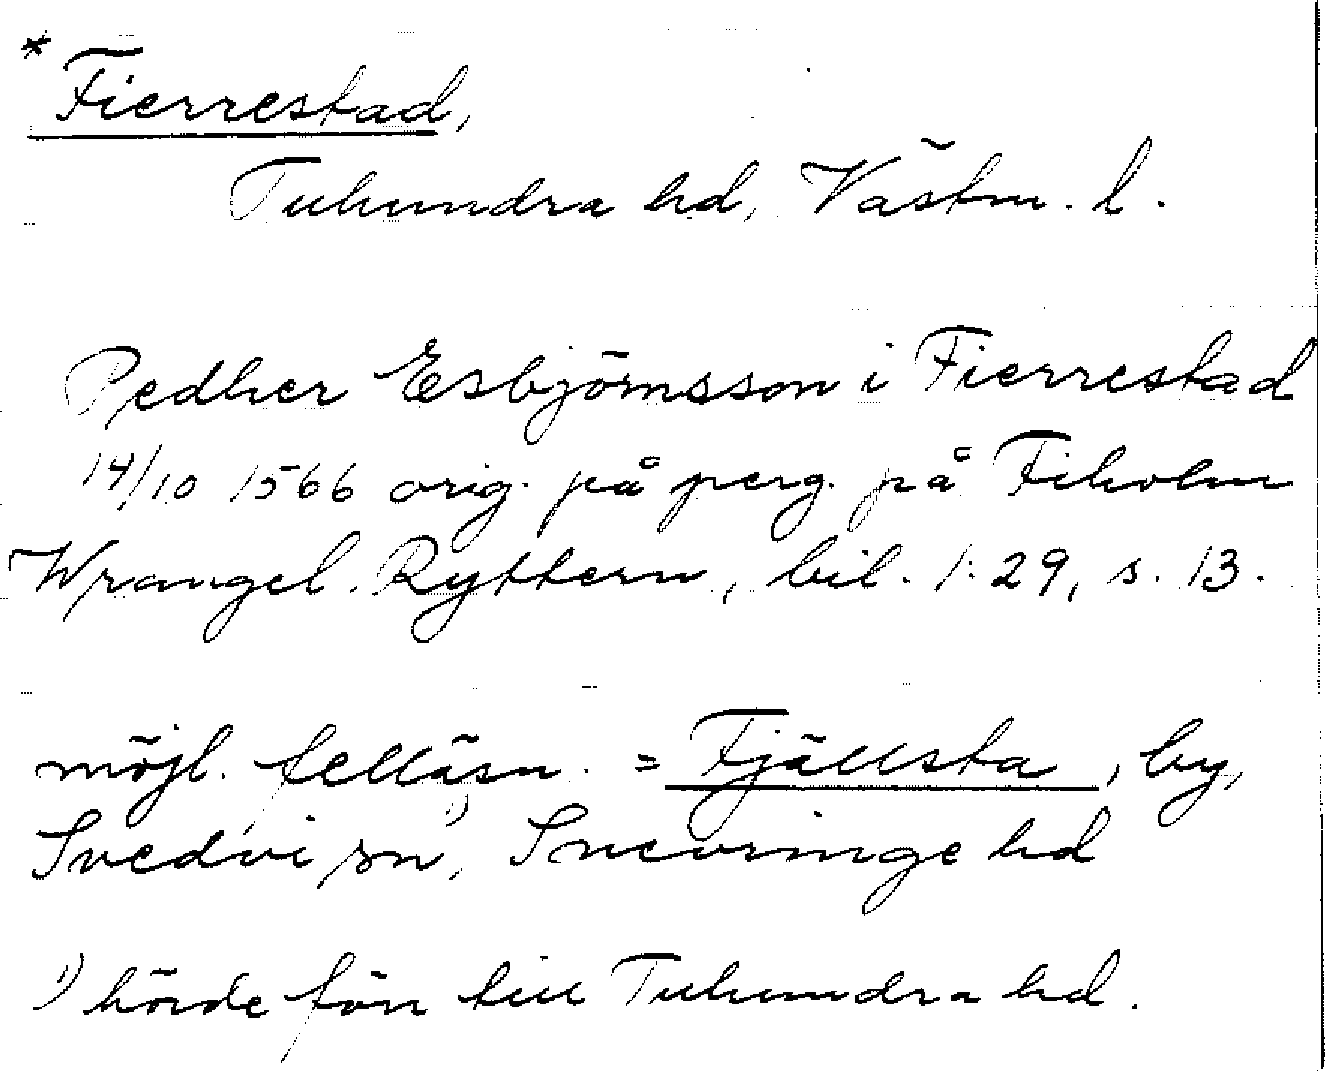 * Fierrestad,
Tuhundra hd, Västm. l.
Pedher Esbjörnsson i Fierrestad
14/10 1566 orig. på perg. på Fiholm
Wrangel. Ryttern, bil. 1:29, s. 13.
möjl. felläsn. = Fjällsta, by,
Svedvi sn, 1) Snevringe hd
1) hörde förr till Tuhundra hd.